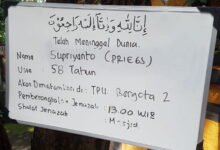 إِنَّا لِلَّهِ وَإِنَّا إِلَيْهِ رَاجِعُوْنَ
Telah Meninggal Dunia.
Nama : Supriyanto (PRIEGS)
Usia : 58 Tahun
Akan Dimakamkan di : TPU. Bergota 2
Pemberangkatan Jenazah : 13.00 WIB
Sholat Jenazah : Masjid